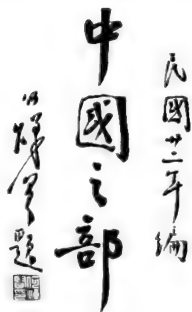 民國廿二年編
中國之部
題